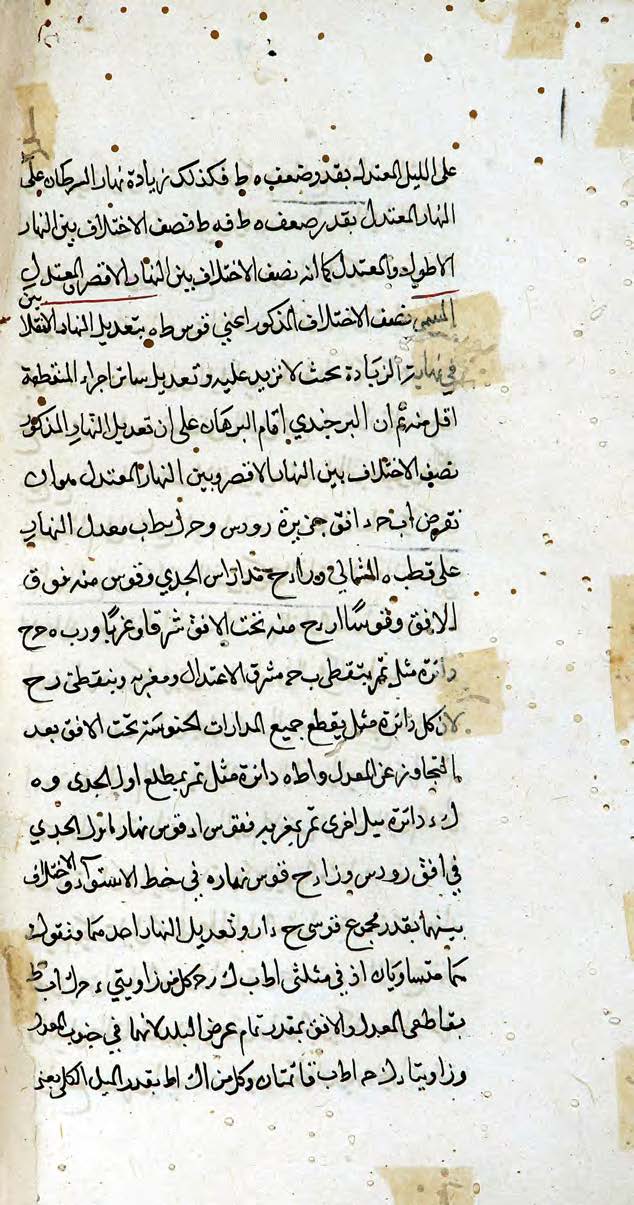 على الليل المعتدل بقدر ضعف ه ط فكذلك زيادة نهار السرطان على
النهار المعتدل بقدر ضعف ه ط فه ط نصف الاختلاف بين النهار
الاطول والمعتدل كما انه نصف الاختلاف بين النهار الاقصر والمعتدل
المسمى نصف الاختلاف المذكور اعني قوس ط ه بتعديل النهار الانقلابين
في نهاية الزيادة بحث لا تزيد عليه وتعديل سائر اجزاء المنطقة
اقل منه ثم ان البرجندي اقام البرهان على ان تعديل النهار المذكور
نصف الاختلاف بين النهار الاقصر وبين النهار المعتدل
نفرض ا ب ح د افق جزيرة رودس و ح ا ط ب معدل النهار
على قطب ه الشمالي و ر ا د ح مدار راس الجدي وقوس منه فوق
الافق وقوسا ا ر د ح منه تحت الافق شرقا وغربا و ر ب ه ح ح
دائرة ميل تمر بنقطتي ب ح مشرق الاعتدال ومغربه وبنقطتي ر ح
لان كل دائرة ميل يقطع جميع المدارات الجنوبية تحت الافق بعد
التجاوز عن المعدل و ا ط ه دائرة ميل تمر بمطلع اول الجدي و ه
ك د دائرة ميل اخرى تمر بمغربه فقوس ا د قوس نهار اول الجدي
في افق رودس و ر ا د ح قوس نهاره في خط الاستوآء والاختلاف
بينهما بقدر مجموع قوسي ح د ا ر وتعديل النهار احدهما فنقول
هما متساويان اذ في مثلثي ا ط ب ك د ح كل من زاويتي د ح ك ا ب ط
بقاطعي المعدل والافق بمقدر تمام عرض البلد لانها في جنوب المعدل
وزاويتا د ك ح ا ط ب قائمتان وكل من د ك ا ط بقدر الميل الكلي يعني